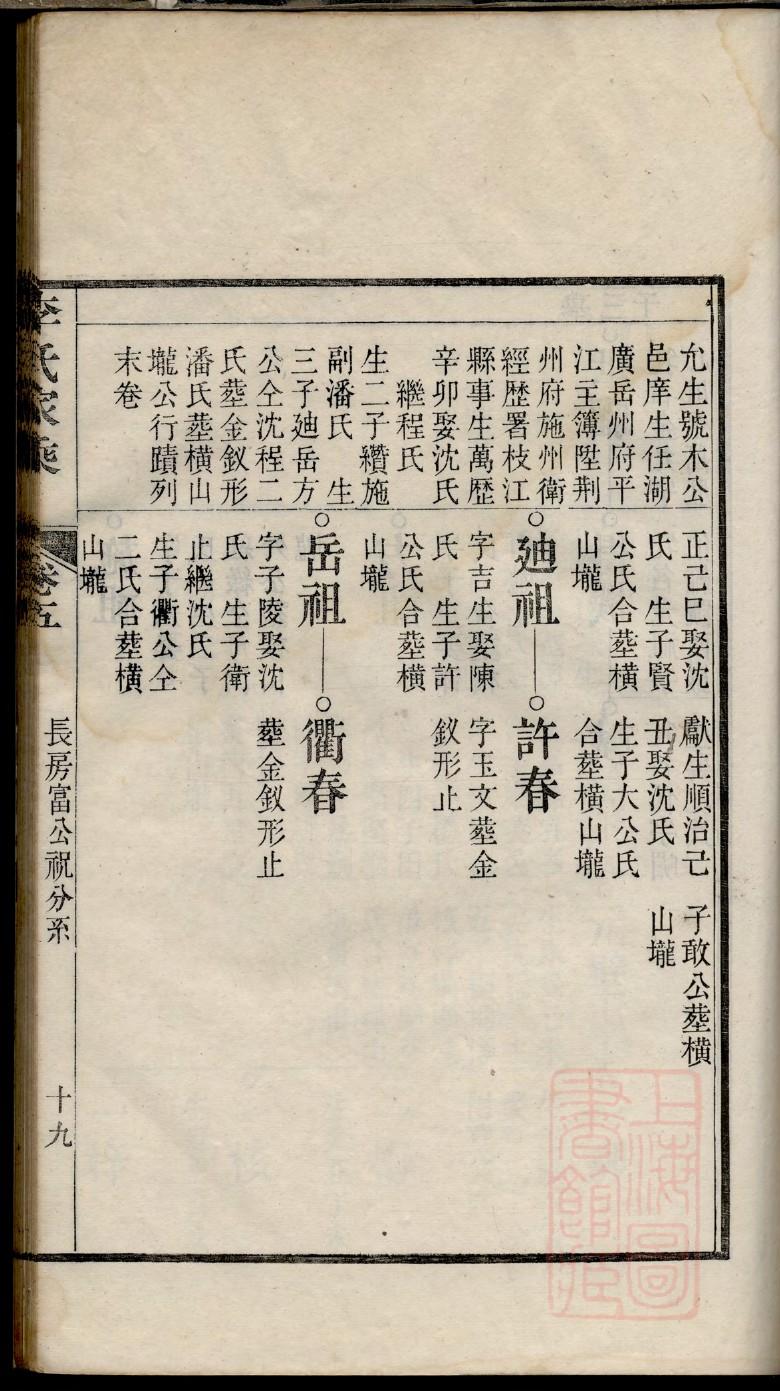 允生號木公
邑庠生任湖
廣岳州府平
江主簿陞荆
州府施州衛
經歷署枝江
縣事生萬歷
辛卯娶沈氏
繼程氏
生二子纘施
副潘氏　生
三子廸岳方
公仝沈程二
氏塟金釵形
潘氏塟橫山
壠公行蹟列
末卷
正己巳娶沈
氏　生子賢
公氏合塟橫
山壠
○廸祖
字吉生娶陳
氏　生子許
公氏合塟橫
山壠
○岳祖
字子陵娶沈
氏　生子衛
止繼沈氏
生子衢公仝
二氏合塟橫
山壠
獻生順治己
丑娶沈氏
生子大公氏
合塟橫山壠
○許春
字玉文塟金
釵形止
○衢春
塟金釵形止
子敢公塟橫
山壠
李氏家乘
卷五
長房富公祝分系
十九
上海圖
書館藏